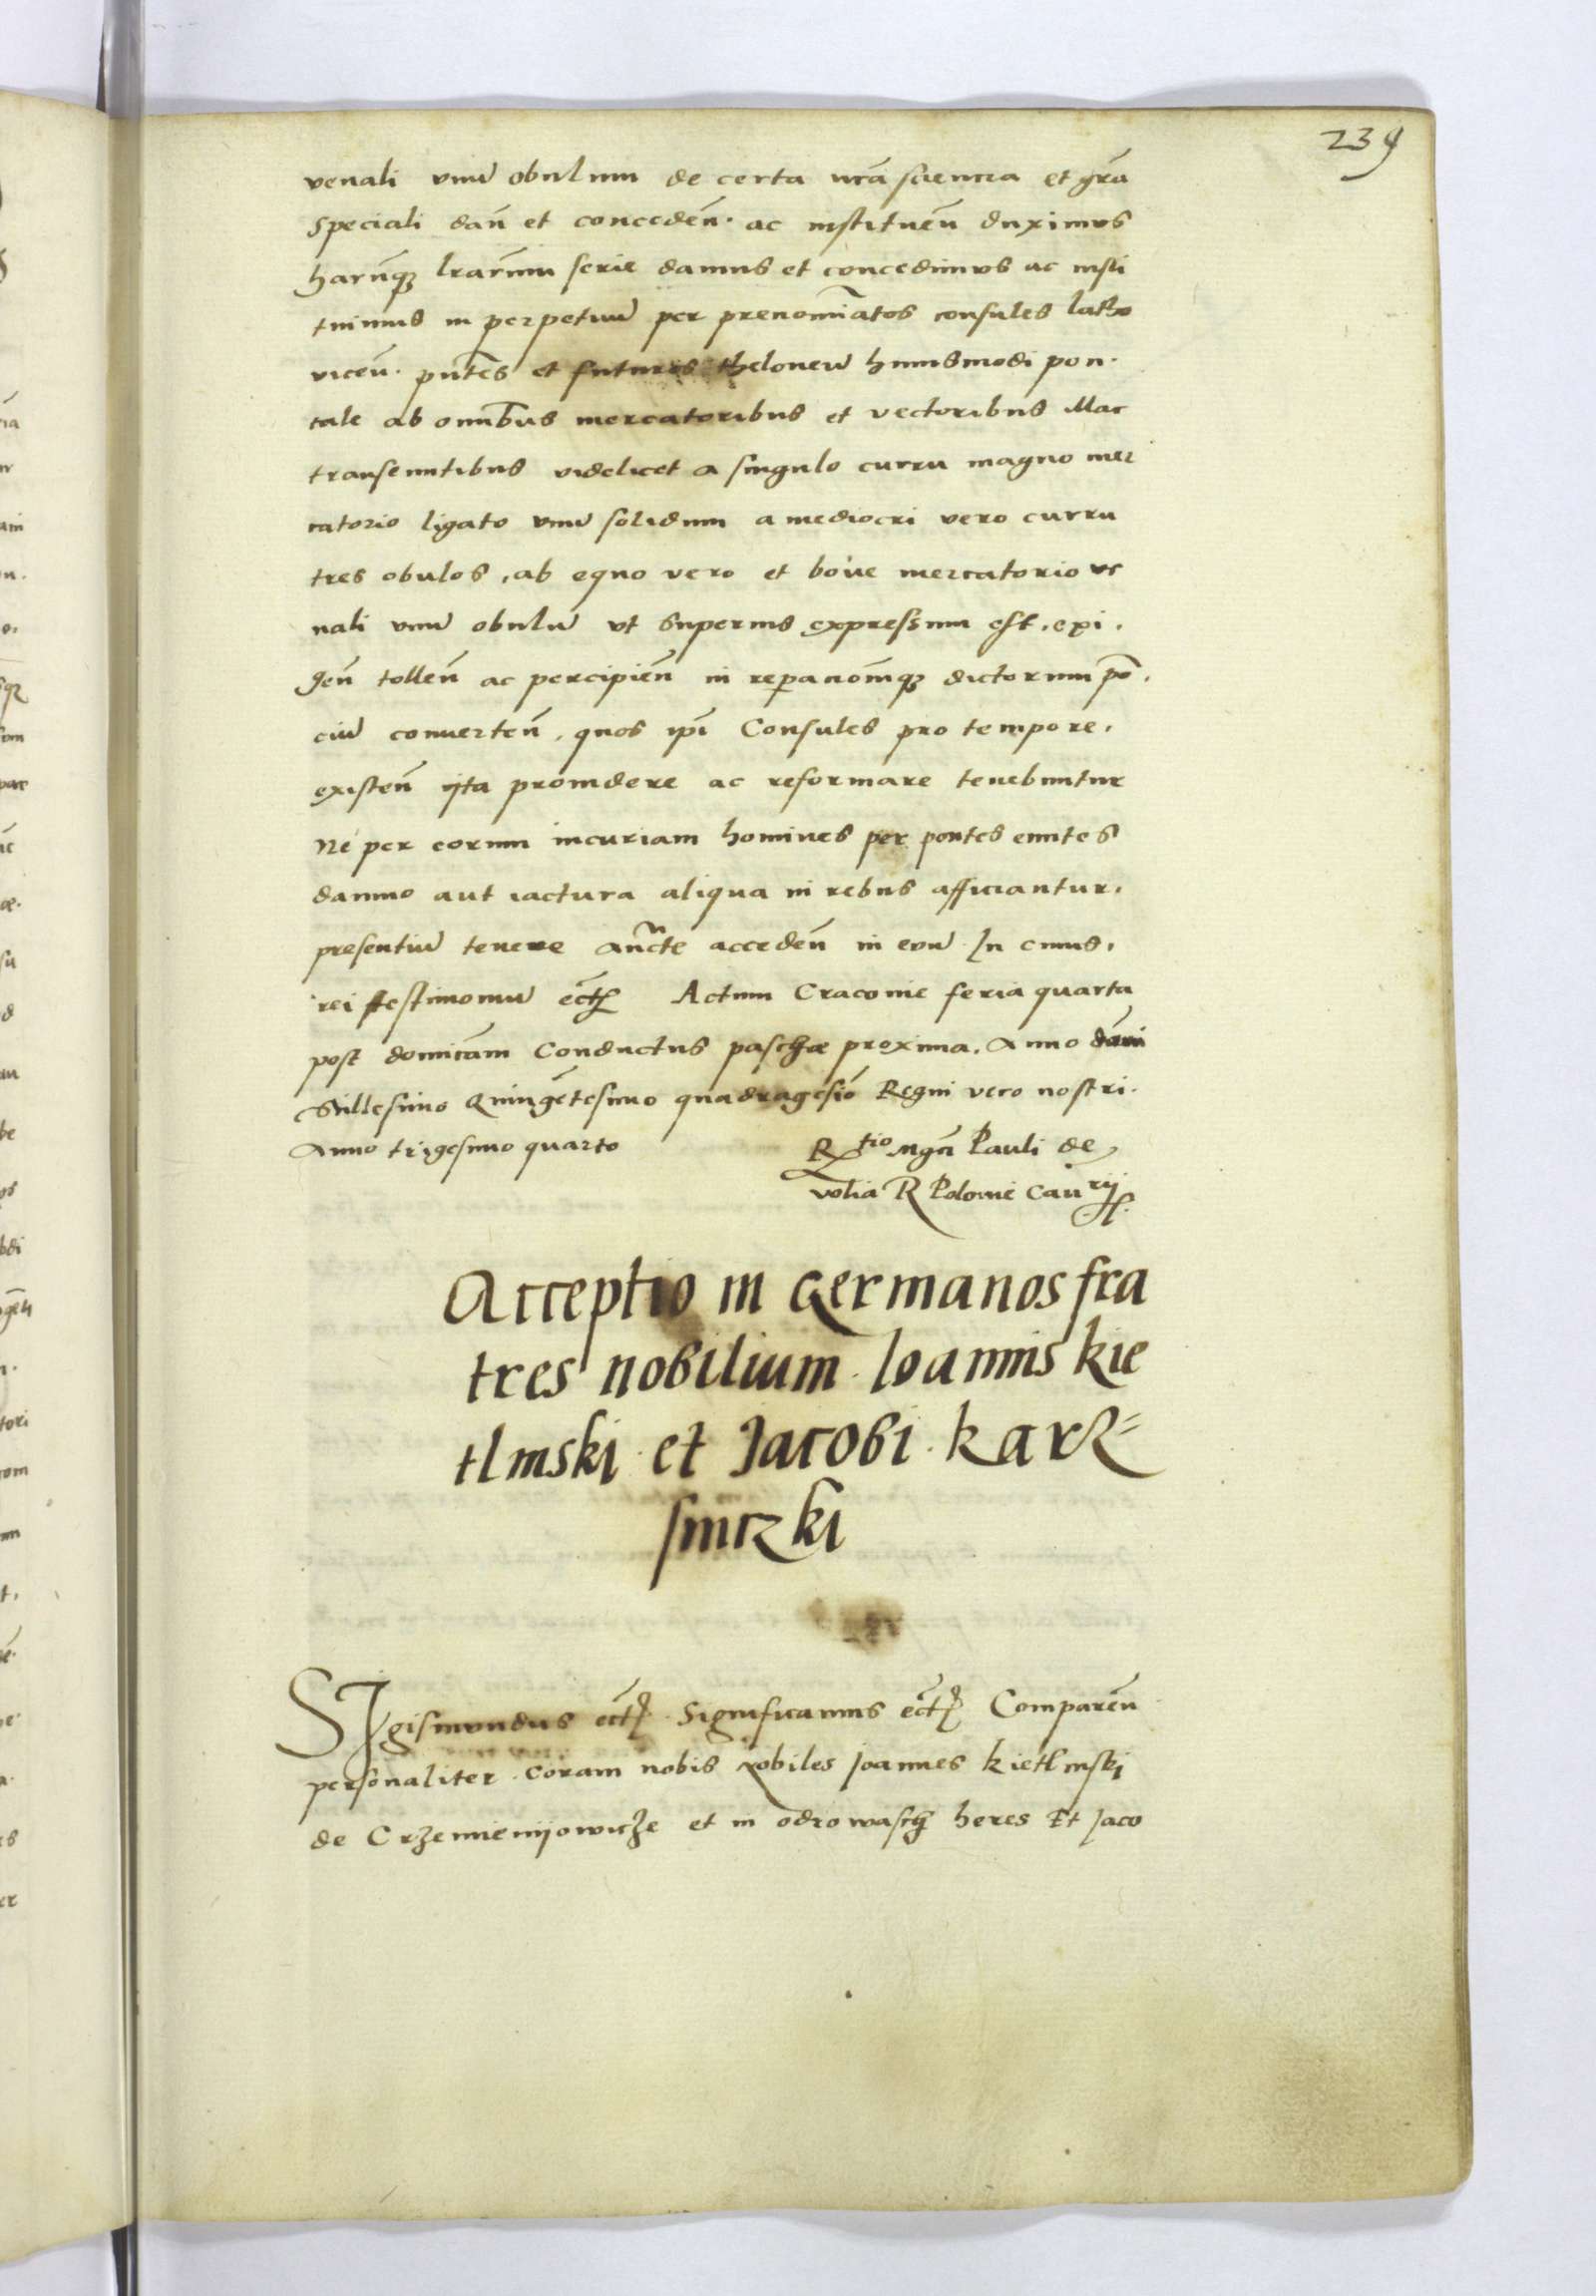 239
venali vnũ obulum de certa nrã sciencia et grã
speciali dañ et conceden̄. ac instituen̄ duximus
harum̃q3 lrãrum serie damus et concedimus ac insti
tuimus in perpetuũ per prenomĩatos consules latho
vicen̄. pñtes et futuros theloneũ huiusmodi pon.
tale ab omnĩbus mercatoribus et vectoribus illac
transeuntibus videlicet a singulo curru magno mer
catorio ligato vnũ solidum a mediocri vero curru
tres obulos, ab equo vero et boue mercatorio ve
nali vnũ obulũ vt superius expressum est. exi.
gen̄ tollen̄ ac percipien̄ in reparanõmq3 dictorum põ.
ciũ conuerten̄, quos ipĩ Consules pro tempore.
existen̄ ijta prouidere ac reformare tenebuntur
Ne per eorum incuriam homines per pontes euntes
damno aut iactura aliqua in rebus afficiantur.
presentiũ tenere acceden̄ in eoũ In cuius.
rei testimoniũ ect̃ Actum Cracouie feria quarta
post dominicãm Conductus paschæ proxima. Anno dñni
Millesimo Quingẽtesimo quadragesiõ Regni vero nostri.
Anno trigesimo quarto
Rtio mgci Pauli de
volia R Polonie Canrij
Acceptio in Germanos fra
tres nobilium Ioannis kie
tlinski et Jacobi karz=
sniczki
SIgismundus ect̃. Significamus ect̃ Comparen̄
personaliter coram nobis Nobiles Joannes kietlinski
de Crzemienijowicze et in odrowasch heres Et Jaco